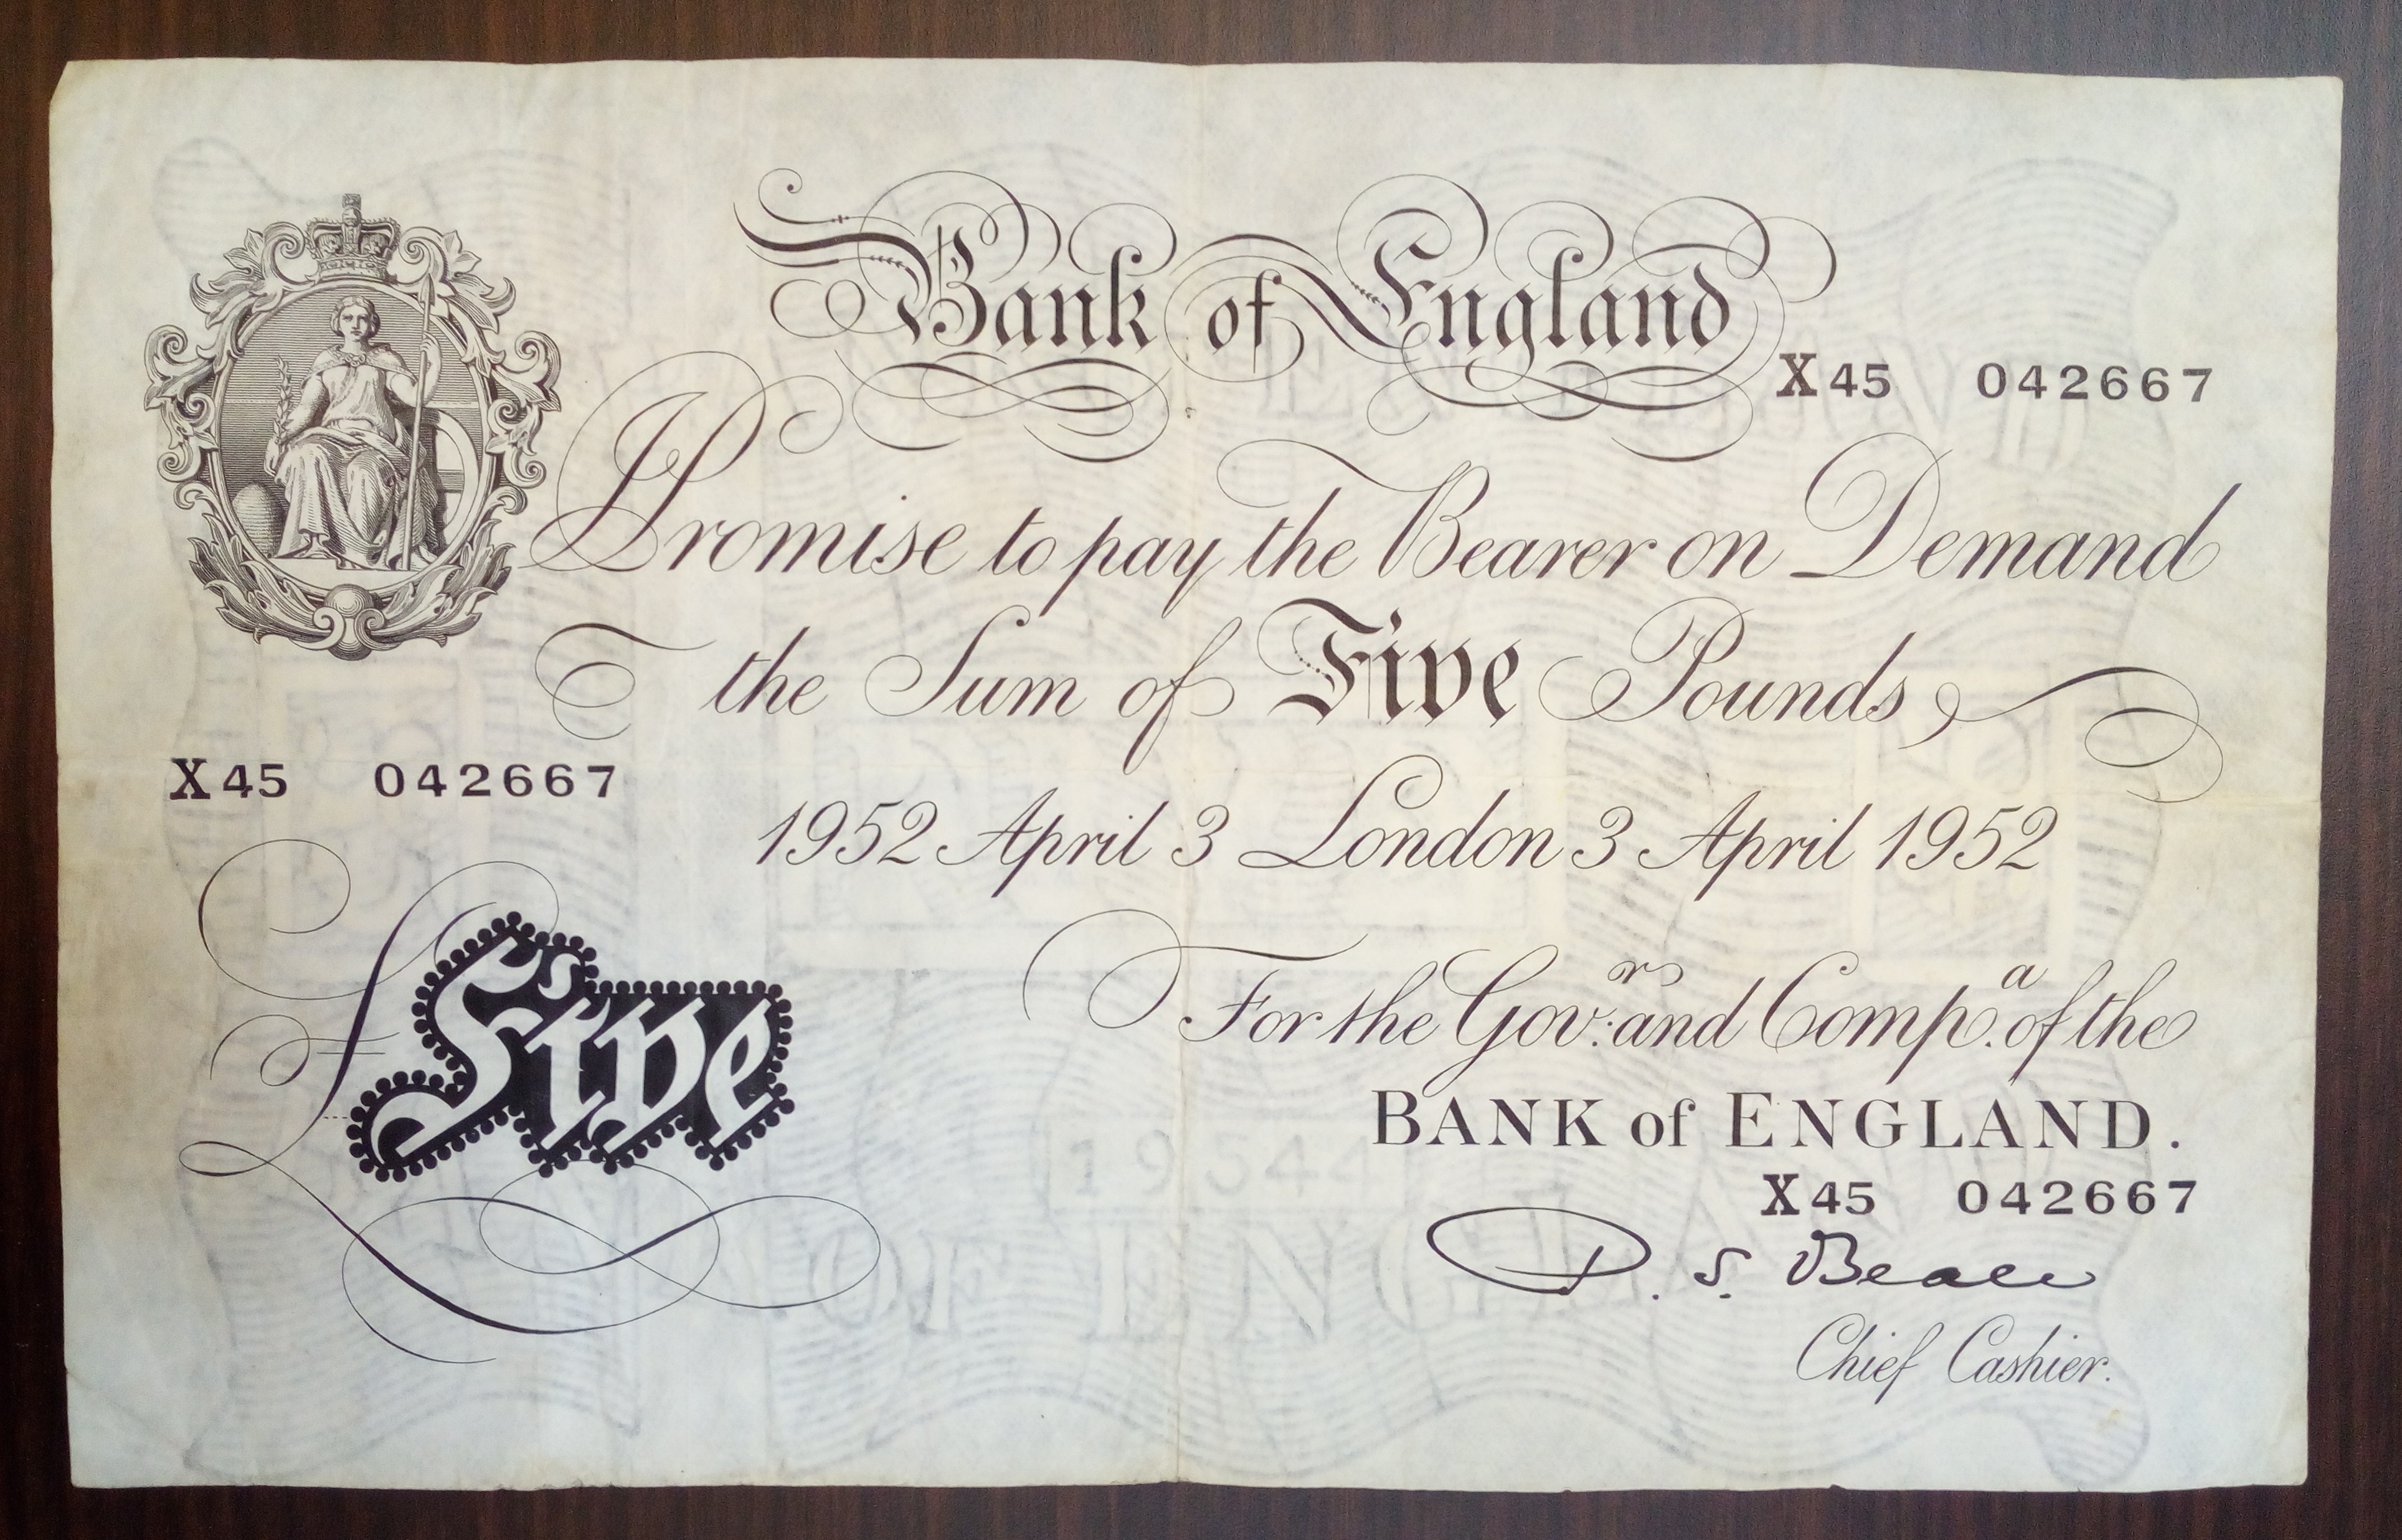 Bank of England
X45 042667
I Promise to pay the Bearer on Demand
the Sum of Five Pounds
X45 042667
1952 April 3 London 3 April 1952
For the Govrs. and Compa. of the
£Five
BANK of ENGLAND.
X45 042667
P. S. Beale
Chief Cashier.